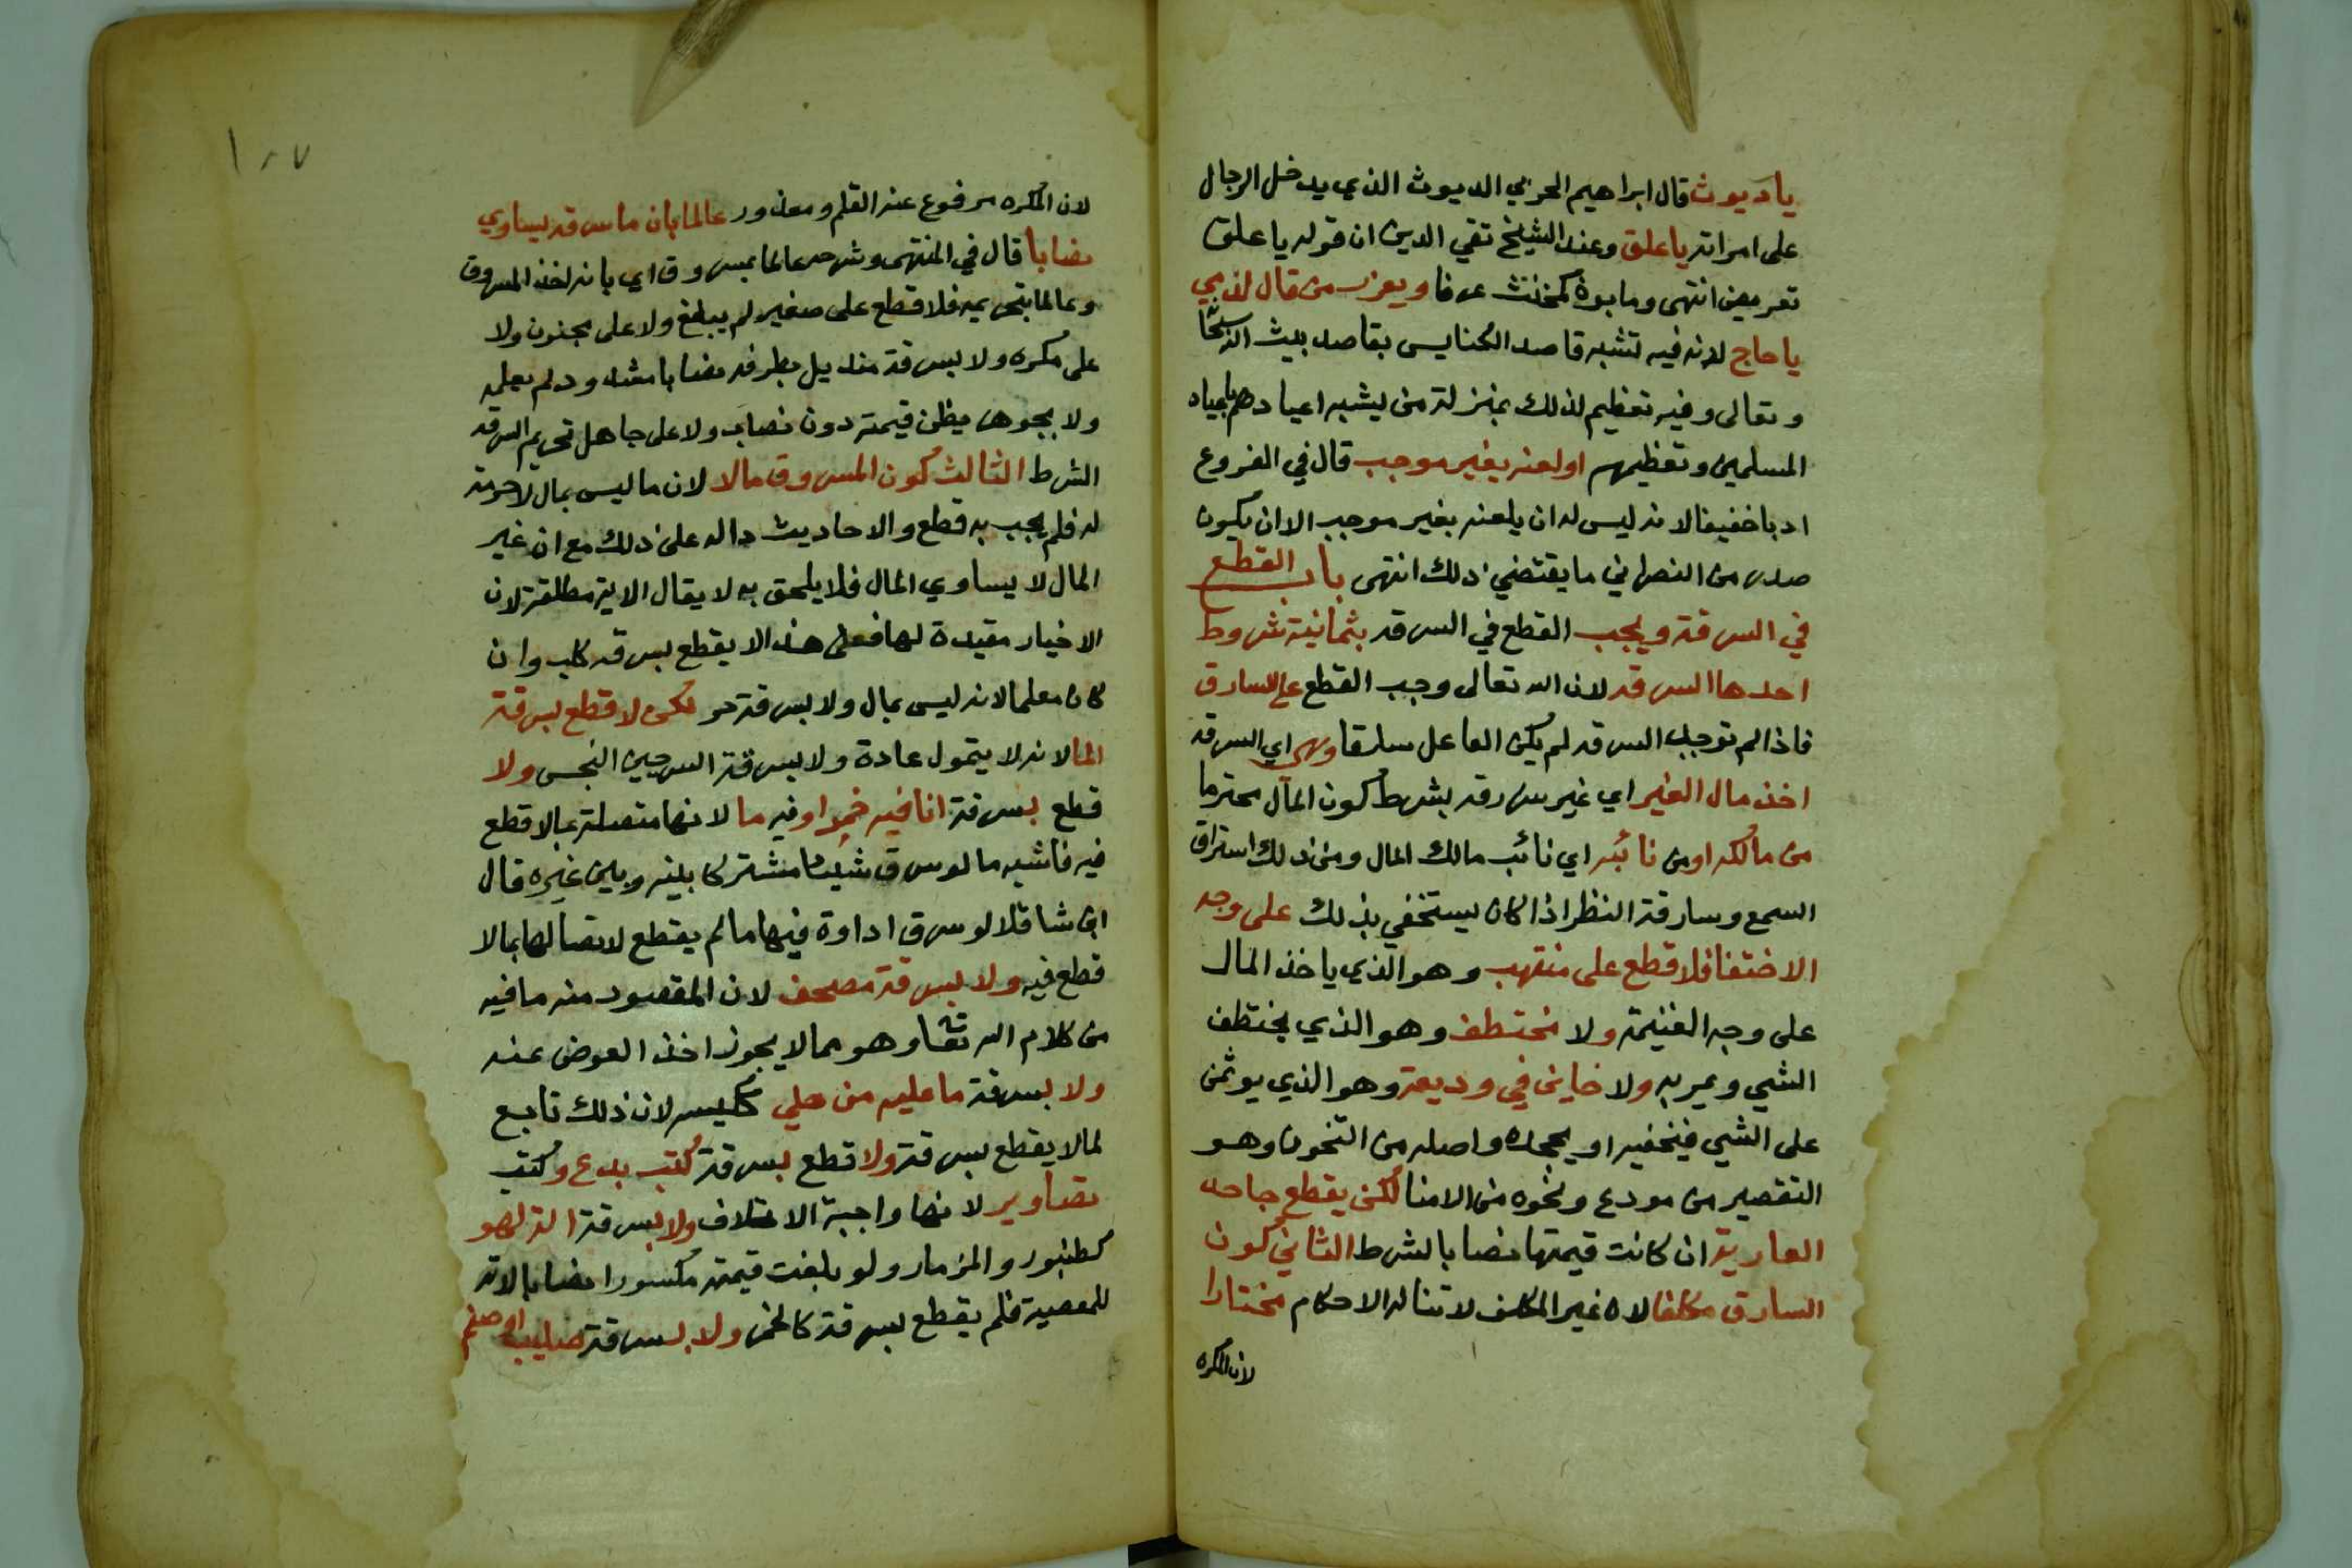 يا ديوث قال ابراهيم الحربي الديوث الذي يدخل الرجال
على امراته يا علق وعند الشيخ تقي الدين ان قوله يا علق
تعريض انتهى ومابونة كمخنث عرفا ويعزر من قال لذمي
يا حاج لانه فيه تشبه قاصد الكنايس بقاصد بيت الله سبحا
وتعالى وفيه تعظيم لذلك بمنزلة من يشبه اعيادهم باعياد
المسلمين وتعظيمهم او لعنه بغير موجب قال في الفروع
ادبا خفيفا لانه ليس له ان يلعنه بغير موجب الا ان يكون
صدر من النصراني ما يقتضي ذلك انتهى باب القطع
في السرقة ويجب القطع في السرقه بثمانية شروط
احدها السرقه لان الله تعالى وجب القطع على السارق
فاذا لم توجب السرقه لم يكن الفاعل سارقا وهي اي السرقه
اخذ مال الغير اي غير سارقه بشرط كون المال محترما
من مالكه او من نائبه اي نائب مالك المال ومن ذلك استراق
السمع وسارقة النظر اذا كان يستخفي بذلك على وجه
الاختفا فلا قطع على منتهب وهو الذي ياخذ المال
على وجه الغنيمة ولا مختطف وهو الذي يختطف
الشي ويمر به ولا خاين في وديعة وهو الذي يوتمن
على الشي فيخفيه او يجحده واصله من التخون وهو
التقصير من مودع ونحوه من الامنا لكن يقطع جاحد
العارية ان كانت قيمتها نصابا الشرط الثاني كون
السارق مكلفا لان غير المكلف لا تناله الاحكام مختارا
لان المكره
١٠٧
لان المكره مرفوع عنه القلم ومعذور عالما بان ما سرقه يساوي
نصابا قال في المنتهى وشرحه عالما بمسروق اي بانه اخذ المسروق
وعالما بتحريمه فلا قطع على صغير لم يبلغ ولا على مجنون ولا
على مكره ولا بسرقة منديل بطرفه نصابا مشدود لم يعلمه
ولا بجوهر يظن قيمته دون نصاب ولا على جاهل تحريم السرقه
الشرط الثالث كون المسروق مالا لان ما ليس بمال لا حرمة
له فلم يجب به قطع والاحاديث داله على ذلك مع ان غير
المال لا يساوي المال فلا يلحق به لا يقال الاية مطلقة لان
الاخبار مقيدة لها فعلى هذا لا يقطع بسرقه كلب وان
كان معلما لانه ليس بمال ولا بسرقة حر لكن لا قطع بسرقة
الما لانه لا يتمول عادة ولا بسرقة السرجين النجس ولا
قطع بسرقة انا فيه خمر او فيه ما لانها متصلة بما لا قطع
فيه فاشبه ما لو سرق شيئا مشتركا بينه وبين غيره قال
ابن شاقلا لو سرق اداوة فيها ما لم يقطع لاتصالها بما لا
قطع فيه ولا بسرقة مصحف لان المقصود منه ما فيه
من كلام الله تعا وهو مما لا يجوز اخذ العوض عنه
ولا بسرقة ما عليه من حلي ككيس لان ذلك تابع
لما لا يقطع بسرقة ولا قطع بسرقة كتب بدع وكتب
تصاوير لانها واجبة الاتلاف ولا بسرقة الة لهو
كطنبور والمزمار ولو بلغت قيمته مكسورا نصابا لانه
للمعصية فلم يقطع بسرقة كالخمر ولا بسرقة صليب او صنم